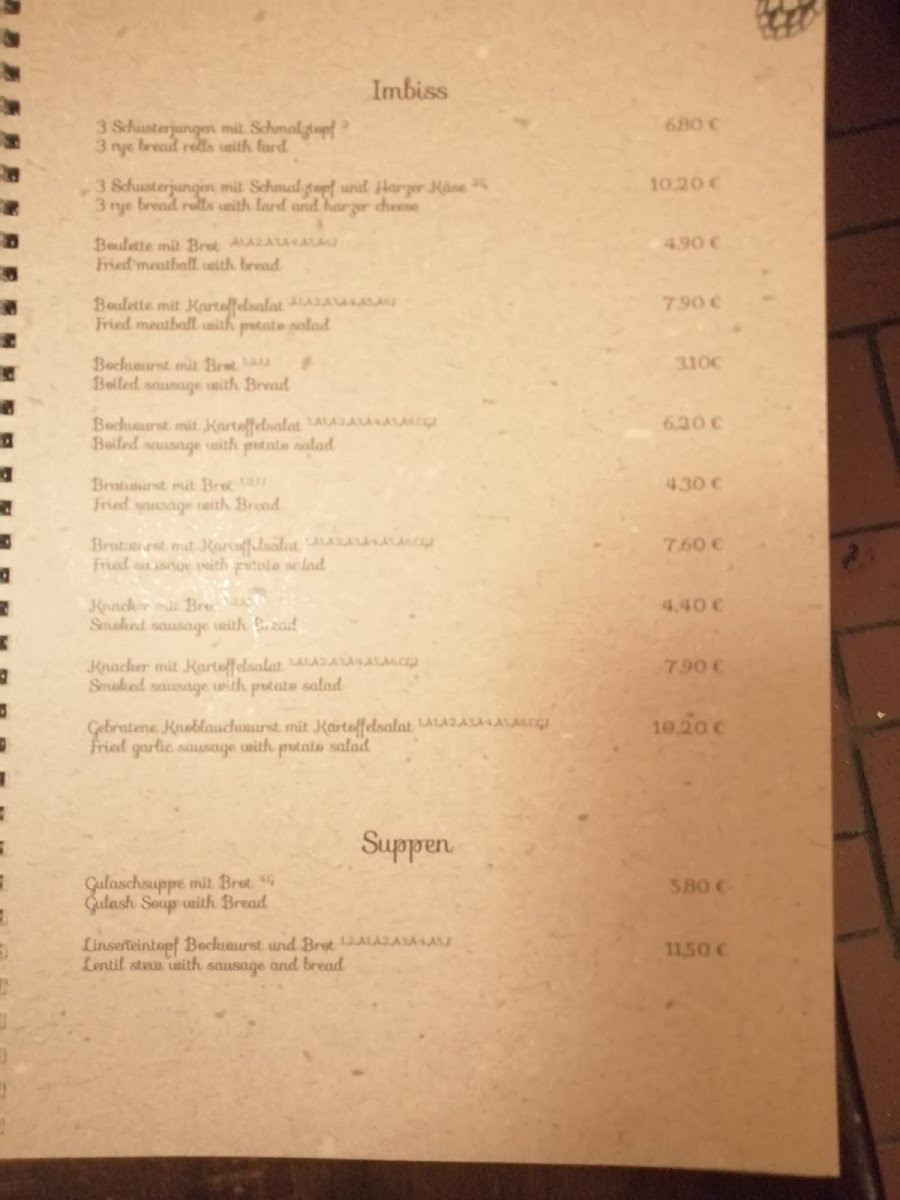 Imbiss
3 Schusterjungen mit Schmalztopf 2 6,80 €
3 rye bread rolls with lard
3 Schusterjungen mit Schmalztopf und Harzer Käse 2G 10,20 €
3 rye bread rolls with lard and harzer cheese
Boulette mit Brot A1,A2,A3,A4,A5,A6J 4,90 €
Fried meatball with bread
Boulette mit Kartoffelsalat A1,A2,A3,A4,A5,A6J 7,90 €
Fried meatball with potato salad
Bockwurst mit Brot 3,10€
Boiled sausage with Bread
Bockwurst mit Kartoffelsalat 1,A1,A2,A3,A4,A5,A6,C,G,J 6,20 €
Boiled sausage with potato salad
Bratwurst mit Brot 4,30 €
Fried sausage with Bread
Bratwurst mit Kartoffelsalat 1,A1,A2,A3,A4,A5,A6,C,G,J 7,60 €
Fried sausage with potato salad
Knacker mit Brot 4,40 €
Smoked sausage with Bread
Knacker mit Kartoffelsalat 1,A1,A2,A3,A4,A5,A6,C,G,J 7,90 €
Smoked sausage with potato salad
Gebratene Knoblauchwurst mit Kartoffelsalat 1,A1,A2,A3,A4,A5,A6,C,G,J 10,20 €
Fried garlic sausage with potato salad
Suppen
Gulaschsuppe mit Brot 5,80 €
Gulash Soup with Bread
Linseneintopf Bockwurst und Brot 1,2,A1,A2,A3,A4,A5,F 11,50 €
Lentil stew with sausage and bread